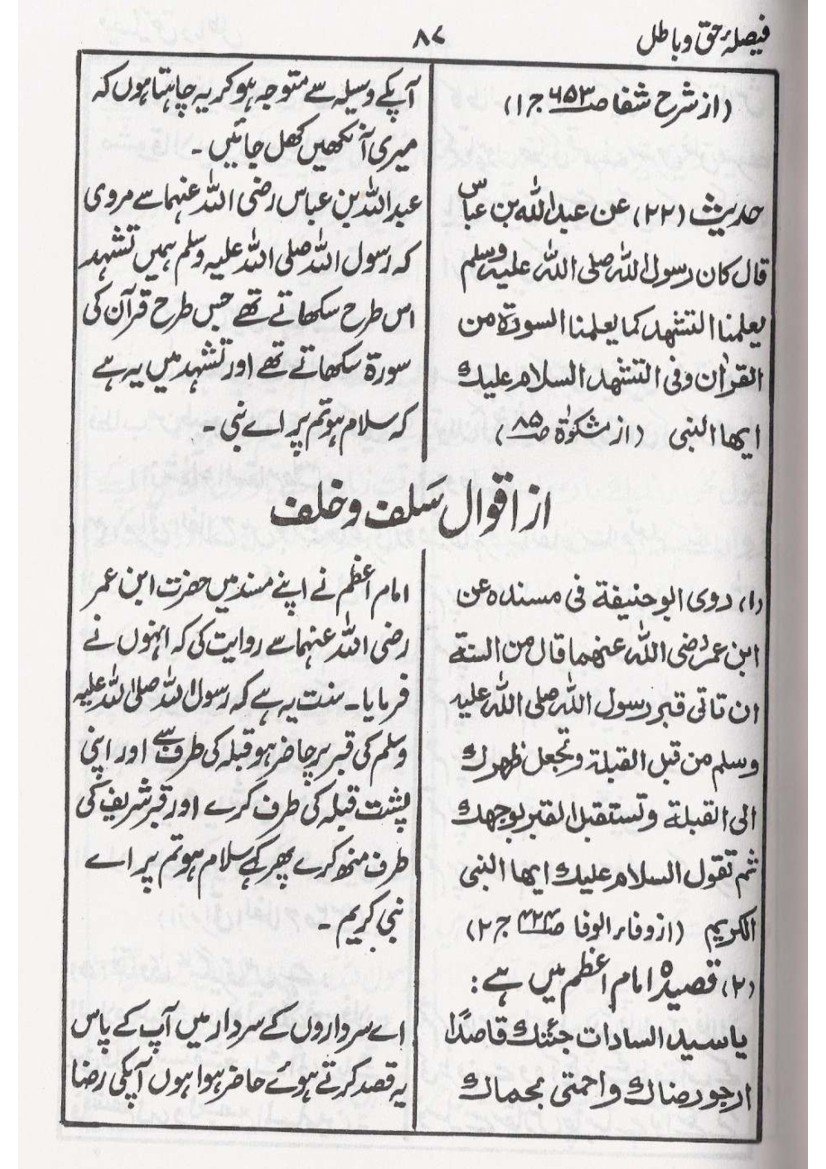 فیصلہ حق و باطل
۸۷
(از شرح شفا صـ۶۵۳ ج ۱)
حدیث (۲۲) عن عبداللہ بن عباس
قال کان رسول اللہ صلی اللہ علیہ وسلم
یعلمنا التشہد کما یعلمنا السورۃ من
القراٰن وفی التشہد السلام علیک
ایہا النبی (از مشکوٰۃ صـ۸۵)
آپکے وسیلہ سے متوجہ ہوکر یہ چاہتا ہوں کہ
میری آنکھیں کھل جائیں ۔
عبداللہ بن عباس رضی اللہ عنہما سے مروی
کہ رسول اللہ صلی اللہ علیہ وسلم ہمیں تشہد
اس طرح سکھاتے تھے جس طرح قرآن کی
سورۃ سکھاتے تھے اور تشہد میں یہ ہے
کہ سلام ہو تم پر اے نبی ۔
از اقوال سَلف و خلف
(۱) روی ابوحنیفۃ فی مسندہ عن
ابن عمر رضی اللہ عنہما قال من السنۃ
ان تاتی قبر رسول اللہ صلی اللہ علیہ
وسلم من قبل القبلۃ وتجعل ظہرک
الی القبلۃ وتستقبل القبر بوجہک
ثم تقول السلام علیک ایہا النبی
الکریم (از وفاء الوفا صـ۴۲۴ ج ۲)
(۲) قصیدہ امام اعظم میں ہے :
یا سید السادات جئتک قاصدًا
ارجو رضاک واحمتی بحماک
امام اعظم نے اپنے مسند میں حضرت ابن عمر
رضی اللہ عنہما سے روایت کی کہ انہوں نے
فرمایا ۔ سنت یہ ہے کہ رسول اللہ صلی اللہ علیہ
وسلم کی قبر پر حاضر ہو قبلہ کی طرف سے اور اپنی
پشت قبلہ کی طرف کرے اور قبر شریف کی
طرف منھ کرے پھر کہے سلام ہو تم پر اے
نبی کریم ۔
اے سرداروں کے سردار میں آپ کے پاس
یہ قصد کرتے ہوئے حاضر ہوا ہوں آپکی رضا